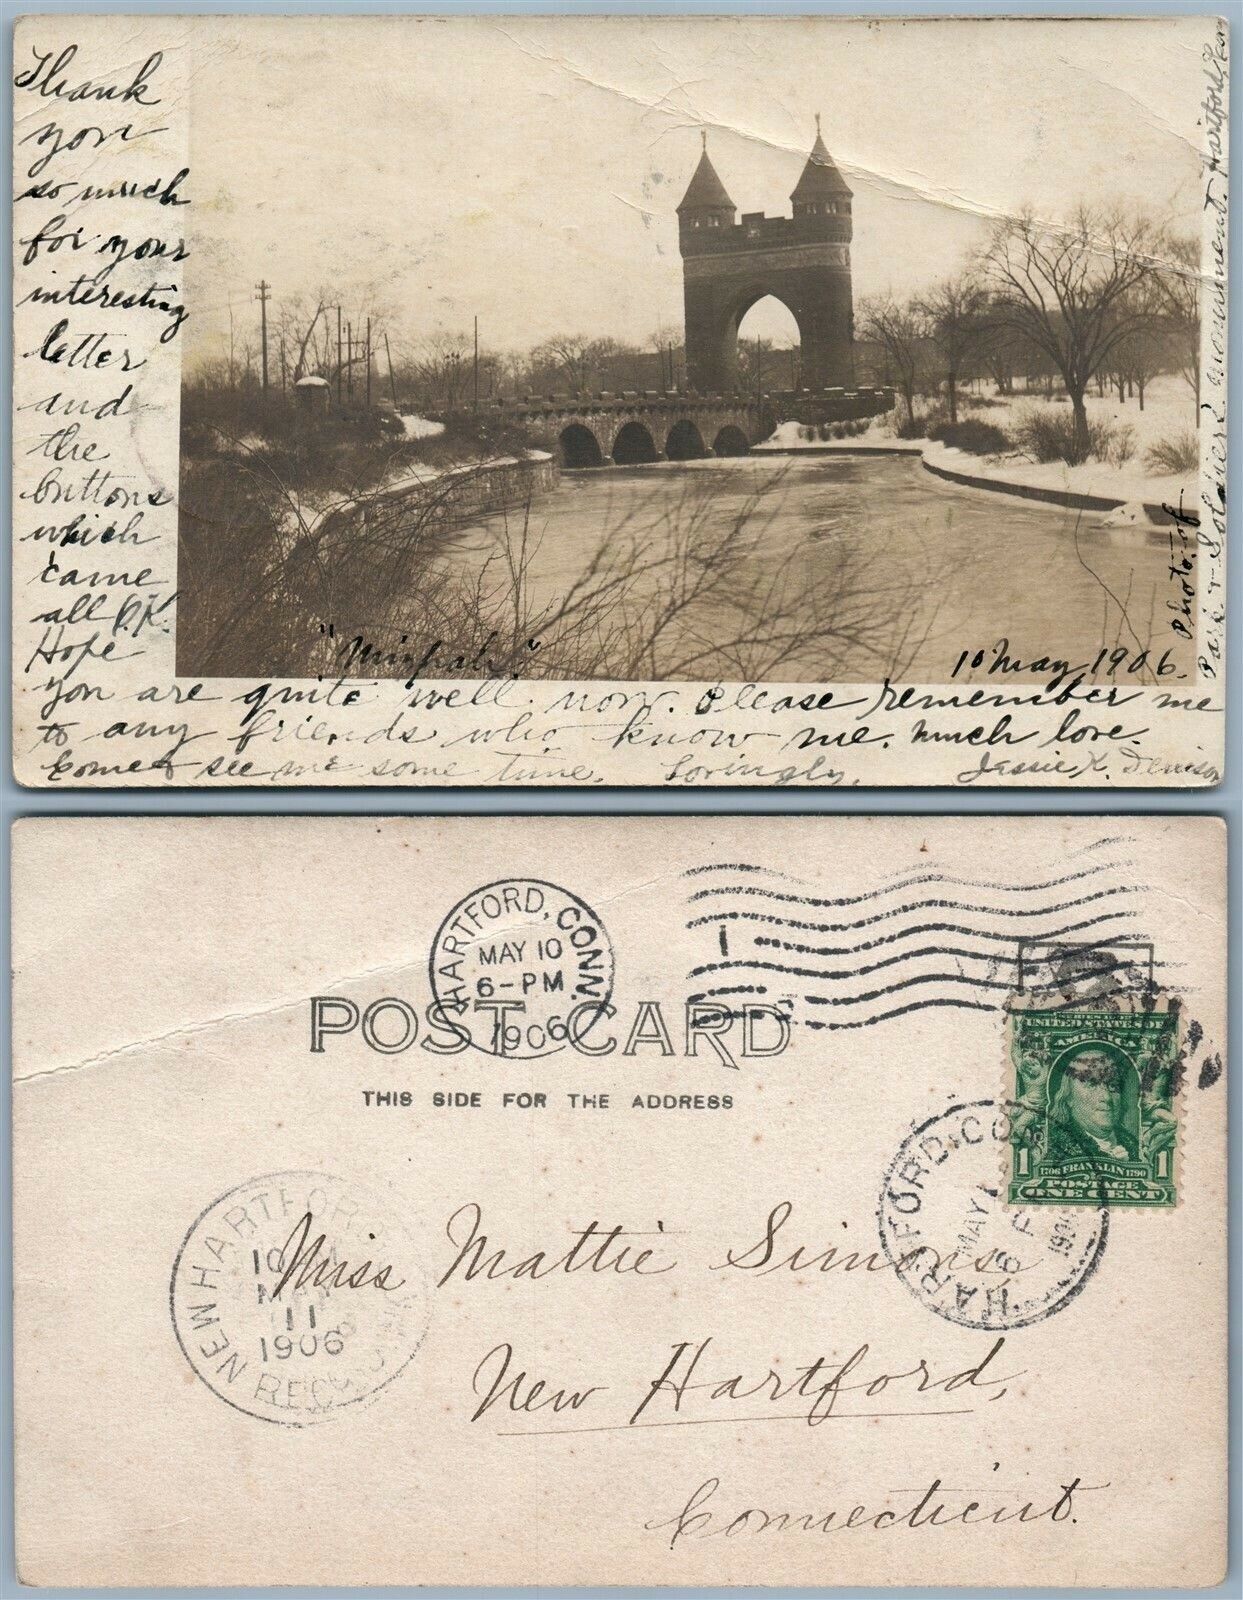 Thank
you
so much
for your
interesting
letter
and
the
buttons
which
came
all O.K.
Hope
you are quite well now. Please remember me
to any friends who know me. Much love.
Come & see me some time. Lovingly,
Jessie K. Denison
"Mizpah."
10 May, 1906.
Photo. of
Park & Soldiers' monument. Hartford, Conn
HARTFORD, CONN.
MAY 10
6-PM
1906
1
POST CARD
THIS SIDE FOR THE ADDRESS
UNITED STATES OF
AMERICA
1706 FRANKLIN 1790
1 1
POSTAGE
ONE CENT
HARTFORD CONN
MAY
6 P
1906
NEW HARTFORD
10
MAY
11
1906
REC'D
Miss Mattie Simons
New Hartford,
Connecticut.